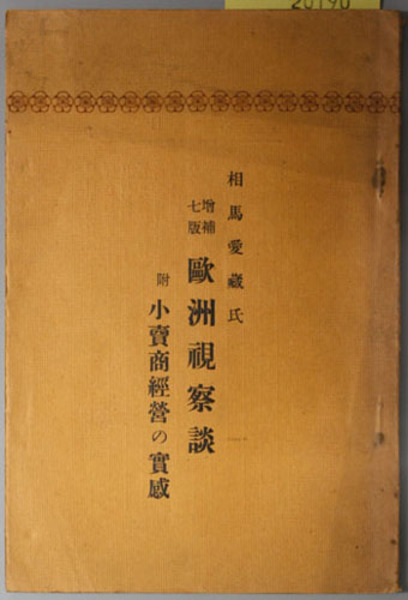 20190
相馬愛藏氏
增補
七版
歐洲視察談
附
小賣商經營の實感